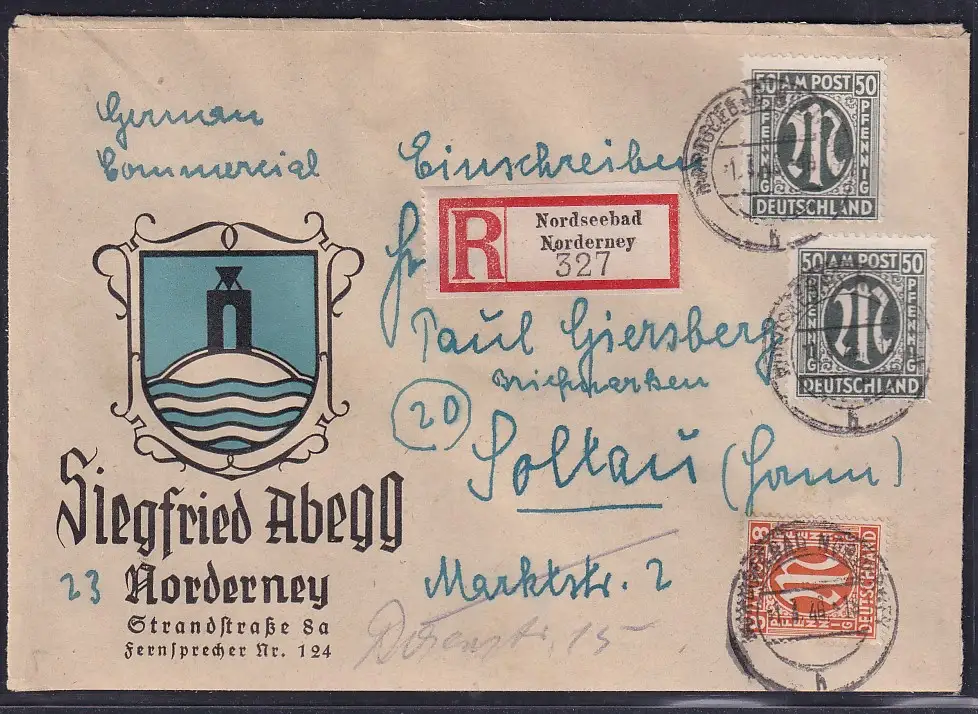 German
Commercial
Einschreiben
R
Nordseebad
Norderney
327
Paul Giersberg
Briefmarken
20
Soltau (Hann)
Marktstr. 2
Siegfried Abegg
23 Norderney
Strandstraße 8a
Fernsprecher Nr. 124
50 AM POST 50
PFENNIG
PFENNIG
DEUTSCHLAND
50 AM POST 50
PFENNIG
PFENNIG
DEUTSCHLAND
8
DEUTSCHLAND
h
h
h